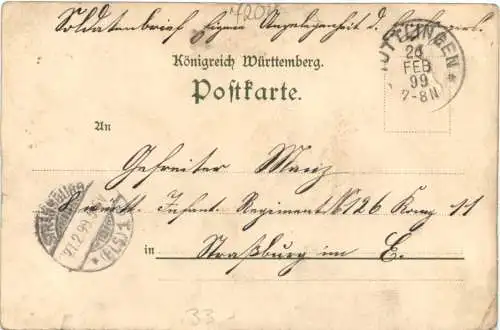 7201
Soldatenbrief Eigene Angelegenheit d. Empfängers.
TUTTLINGEN
26
FEB
99
7-8N
Königreich Württemberg.
Postkarte.
An
Gefreiter Mainz
STRASSBURG
27.2.99
(ELS) 1
8 württ. Infant. Regiment No 126 Komp 11
in Straßburg im E.
33